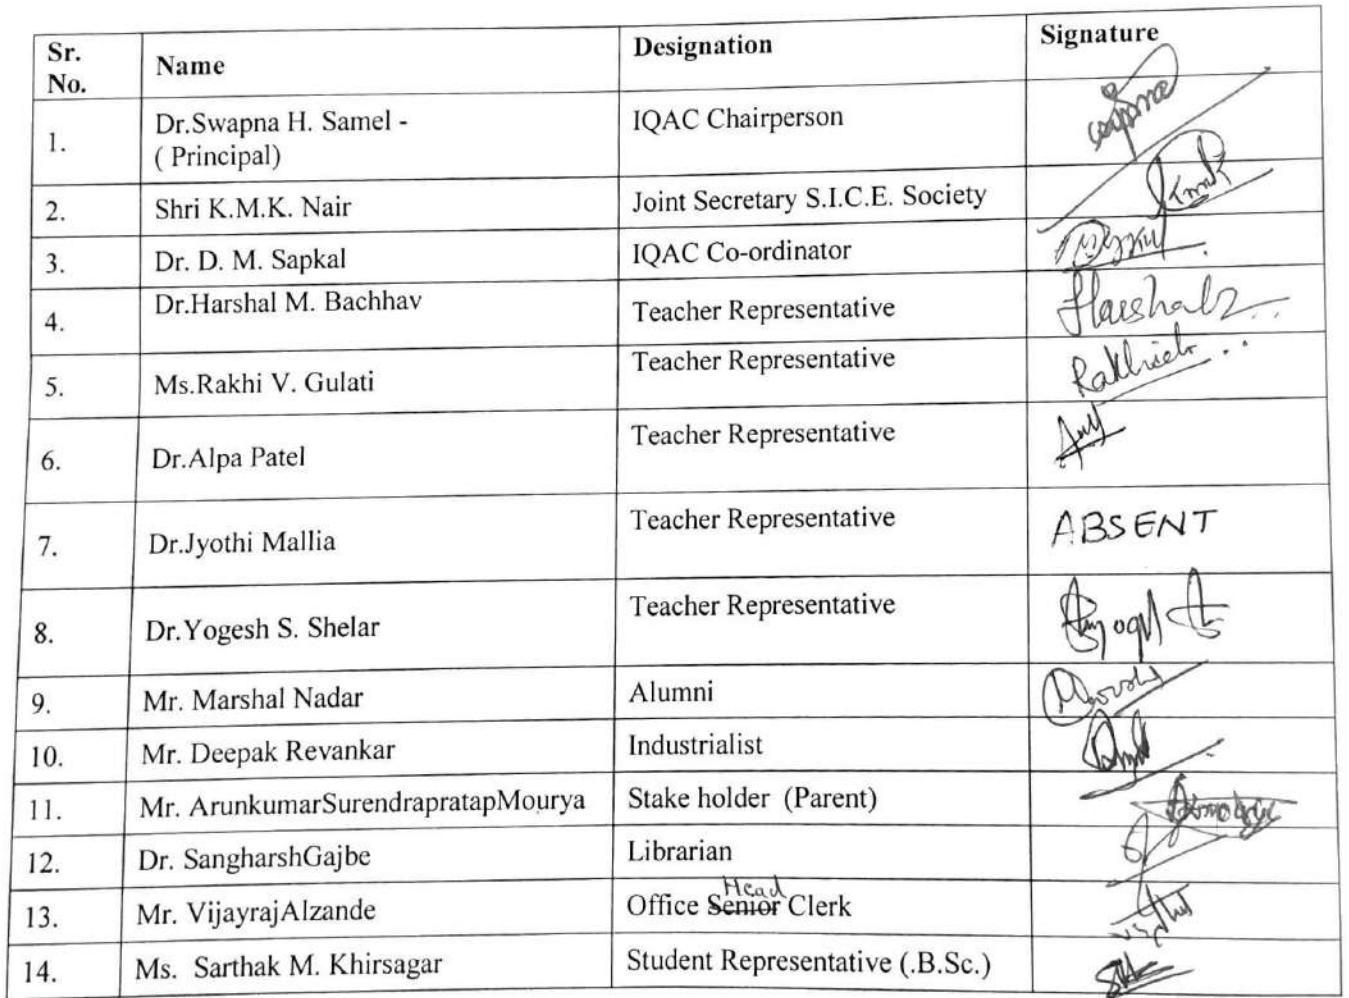 Sr. No. Name Designation Signature
1. Dr.Swapna H. Samel - IQAC Chairperson
( Principal)
2. Shri K.M.K. Nair Joint Secretary S.I.C.E. Society
3. Dr. D. M. Sapkal IQAC Co-ordinator
4. Dr.Harshal M. Bachhav Teacher Representative
5. Ms.Rakhi V. Gulati Teacher Representative
6. Dr.Alpa Patel Teacher Representative
7. Dr.Jyothi Mallia Teacher Representative ABSENT
8. Dr.Yogesh S. Shelar Teacher Representative
9. Mr. Marshal Nadar Alumni
10. Mr. Deepak Revankar Industrialist
11. Mr. ArunkumarSurendrapratapMourya Stake holder (Parent)
12. Dr. SangharshGajbe Librarian
Head
13. Mr. VijayrajAlzande Office Senior Clerk
14. Ms. Sarthak M. Khirsagar Student Representative (.B.Sc.)